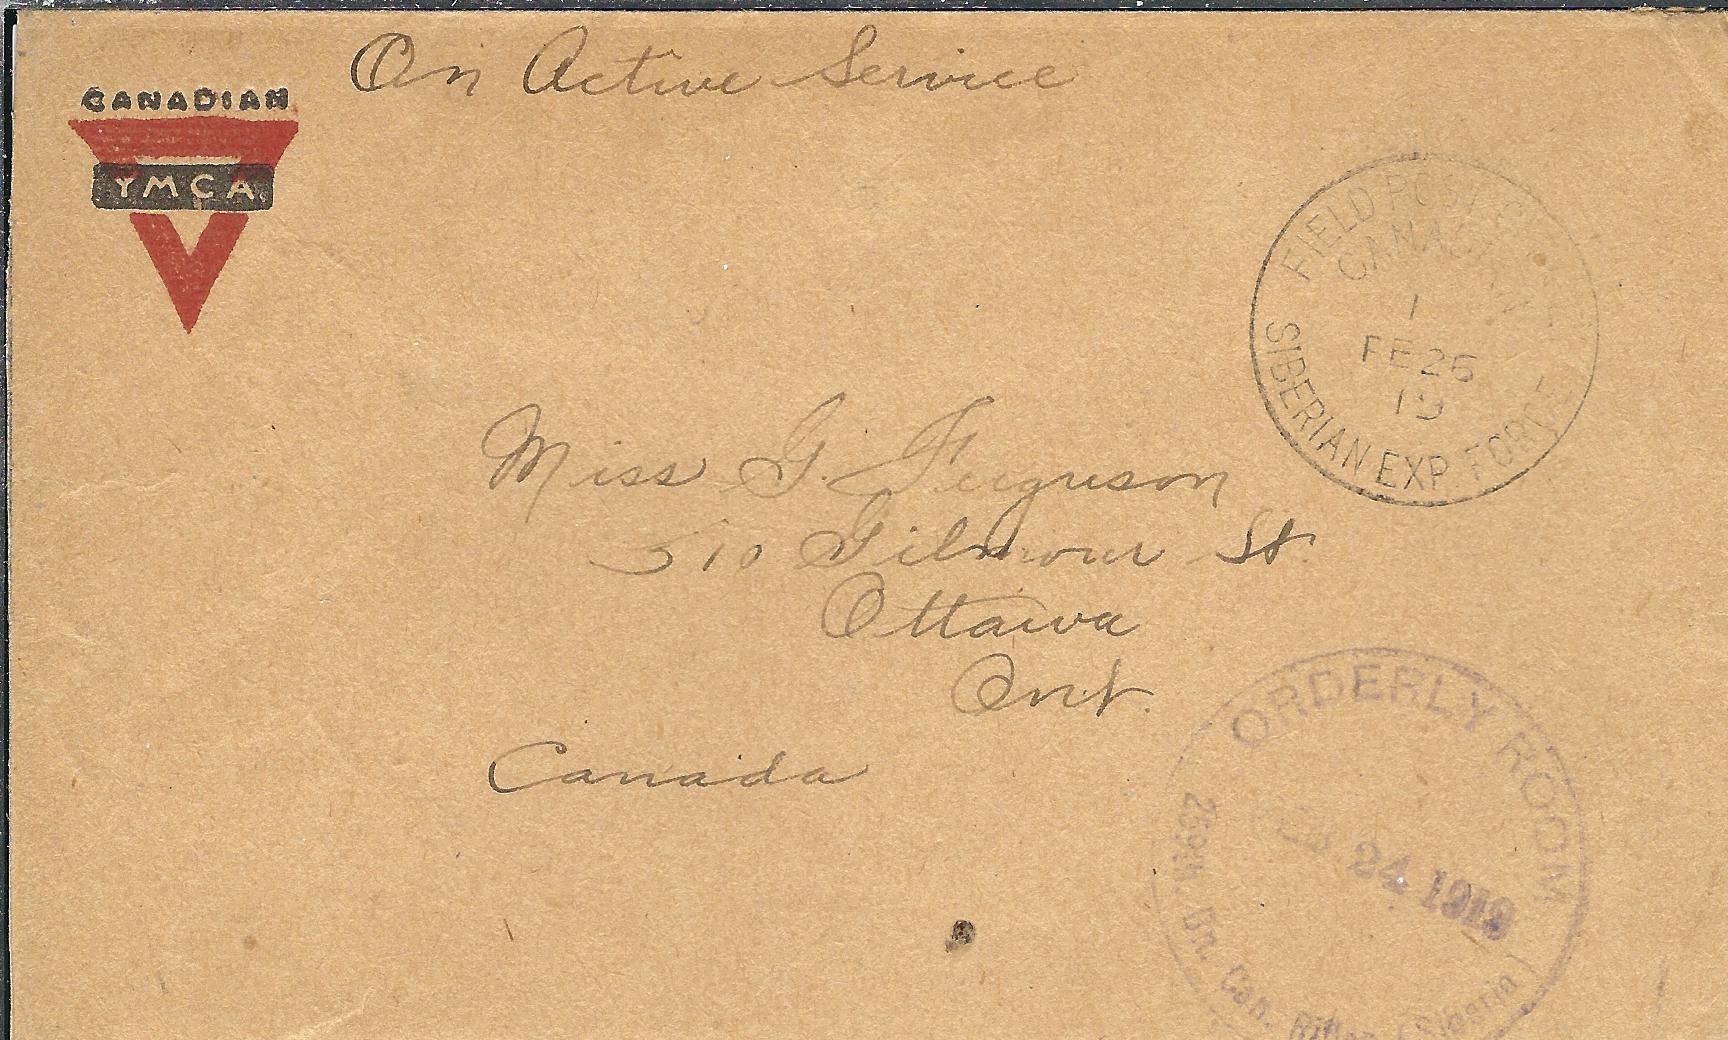 On Active Service
CANADIAN
YMCA
FIELD POST OFFICE
CANADIAN
1
FE 26
19
SIBERIAN EXP. FORCE
Miss G. Ferguson
510 Gilmour St.
Ottawa
Ont.
Canada
ORDERLY ROOM
24 1919
259th. Bn. Can. Rifles (Siberia)